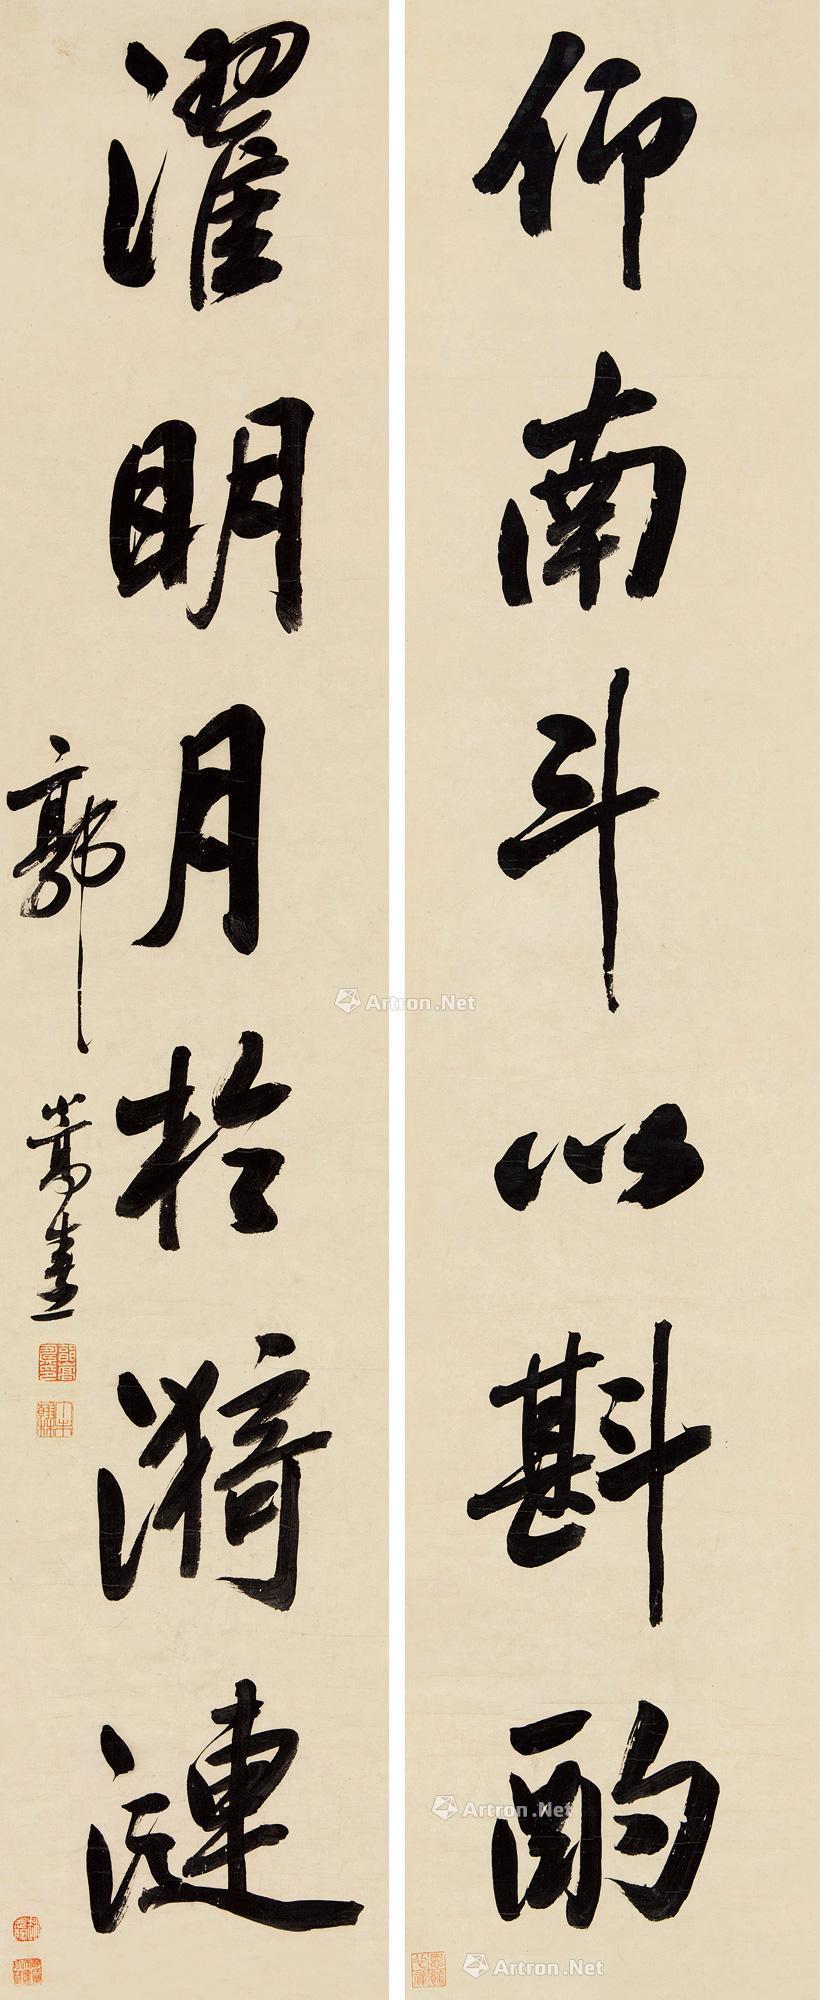 仰南斗以斟酌
濯明月於漪漣
郭嵩燾
Artron.Net
Artron.Net
Artron.Net